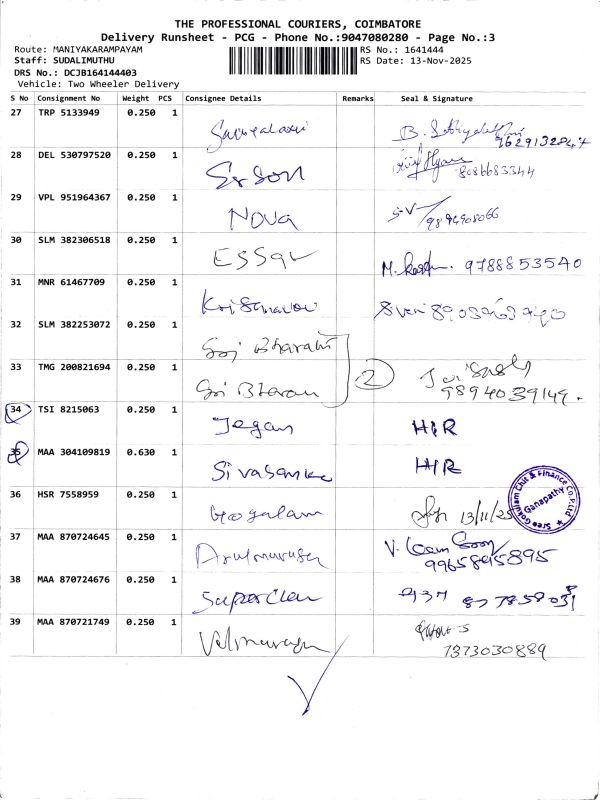 THE PROFESSIONAL COURIERS, COIMBATORE
Delivery Runsheet - PCG - Phone No.:9047080280 - Page No.:3
Route: MANIYAKARAMPAYAM RS No.: 1641444
Staff: SUDALIMUTHU RS Date: 13-Nov-2025
DRS No.: DCJB164144403
Vehicle: Two Wheeler Delivery
S No Consignment No Weight PCS Consignee Details Remarks Seal & Signature
27 TRP 5133949 0.250 1
28 DEL 530797520 0.250 1 8086683344
29 VPL 951964367 0.250 1 NOVA S-V
30 SLM 382306518 0.250 1 ESSAR 9788853540
31 MNR 61467709 0.250 1
32 SLM 382253072 0.250 1 Sri Bharath
33 TMG 200821694 0.250 1 Sri Bharath 2 9894039149.
34 TSI 8215063 0.250 1 Jegan H/R
35 MAA 304109819 0.630 1 H/R
36 HSR 7558959 0.250 1 Gogulam 13/11/25
Sree Gokulam Chit & Finance Co.P.Ltd
Ganapathy
37 MAA 870724645 0.250 1 Arulmurugan 9965895895
38 MAA 870724676 0.250 1
39 MAA 870721749 0.250 1 Velmurugan
7373030889